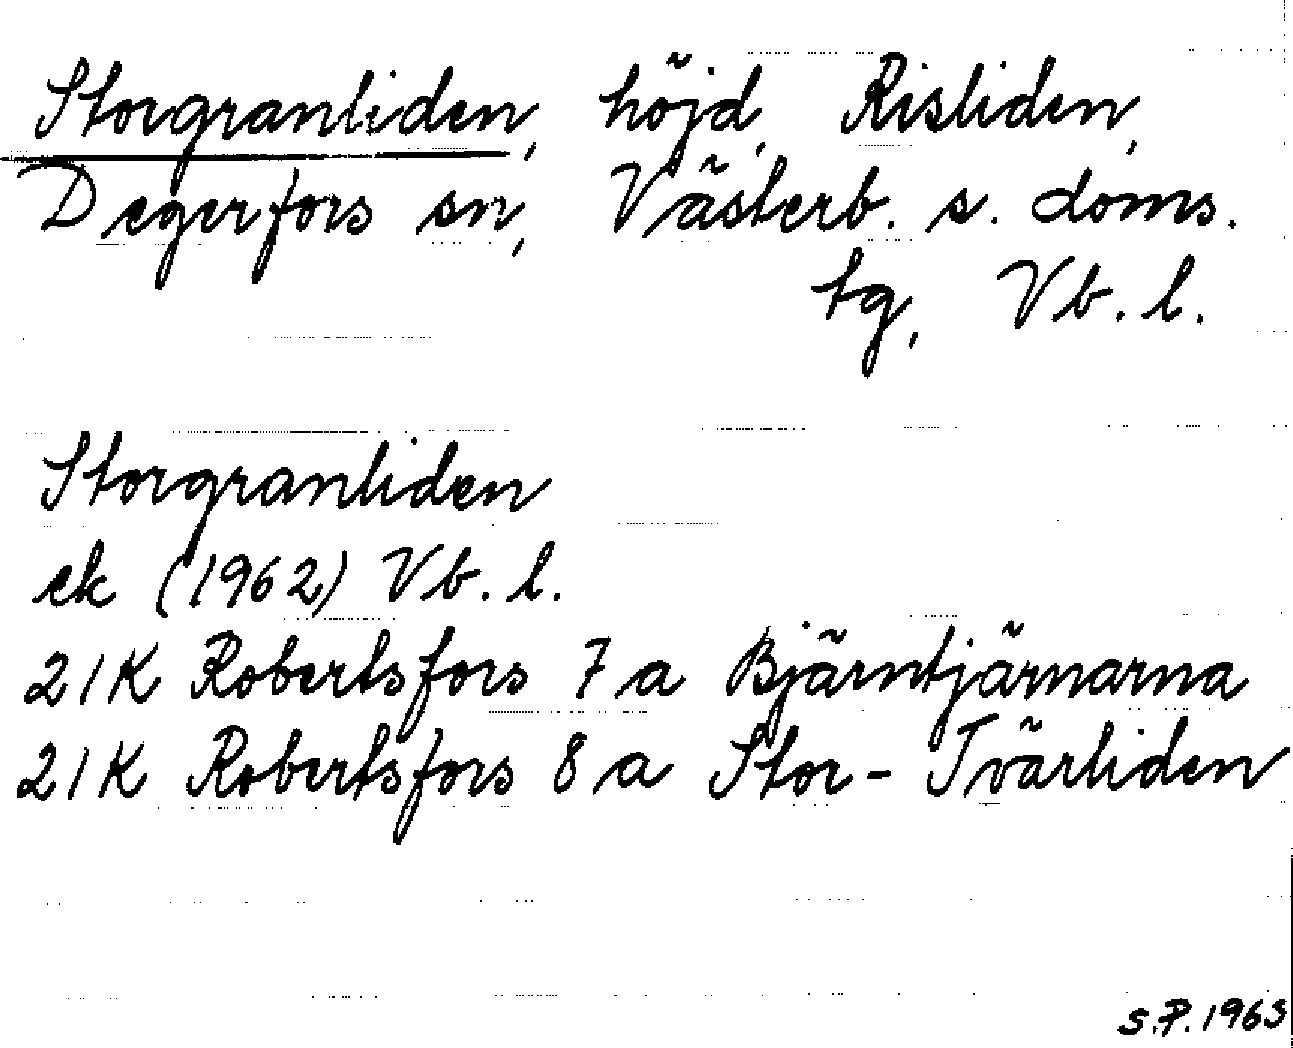 Storgranliden, höjd, Risliden,
Degerfors sn, Västerb. s. doms.
tg, Vb. l.
Storgranliden
ek (1962) Vb. l.
21K Robertsfors 7 a Bjärntjärnarna
21K Robertsfors 8 a Stor-Tvärliden
S.P. 1963